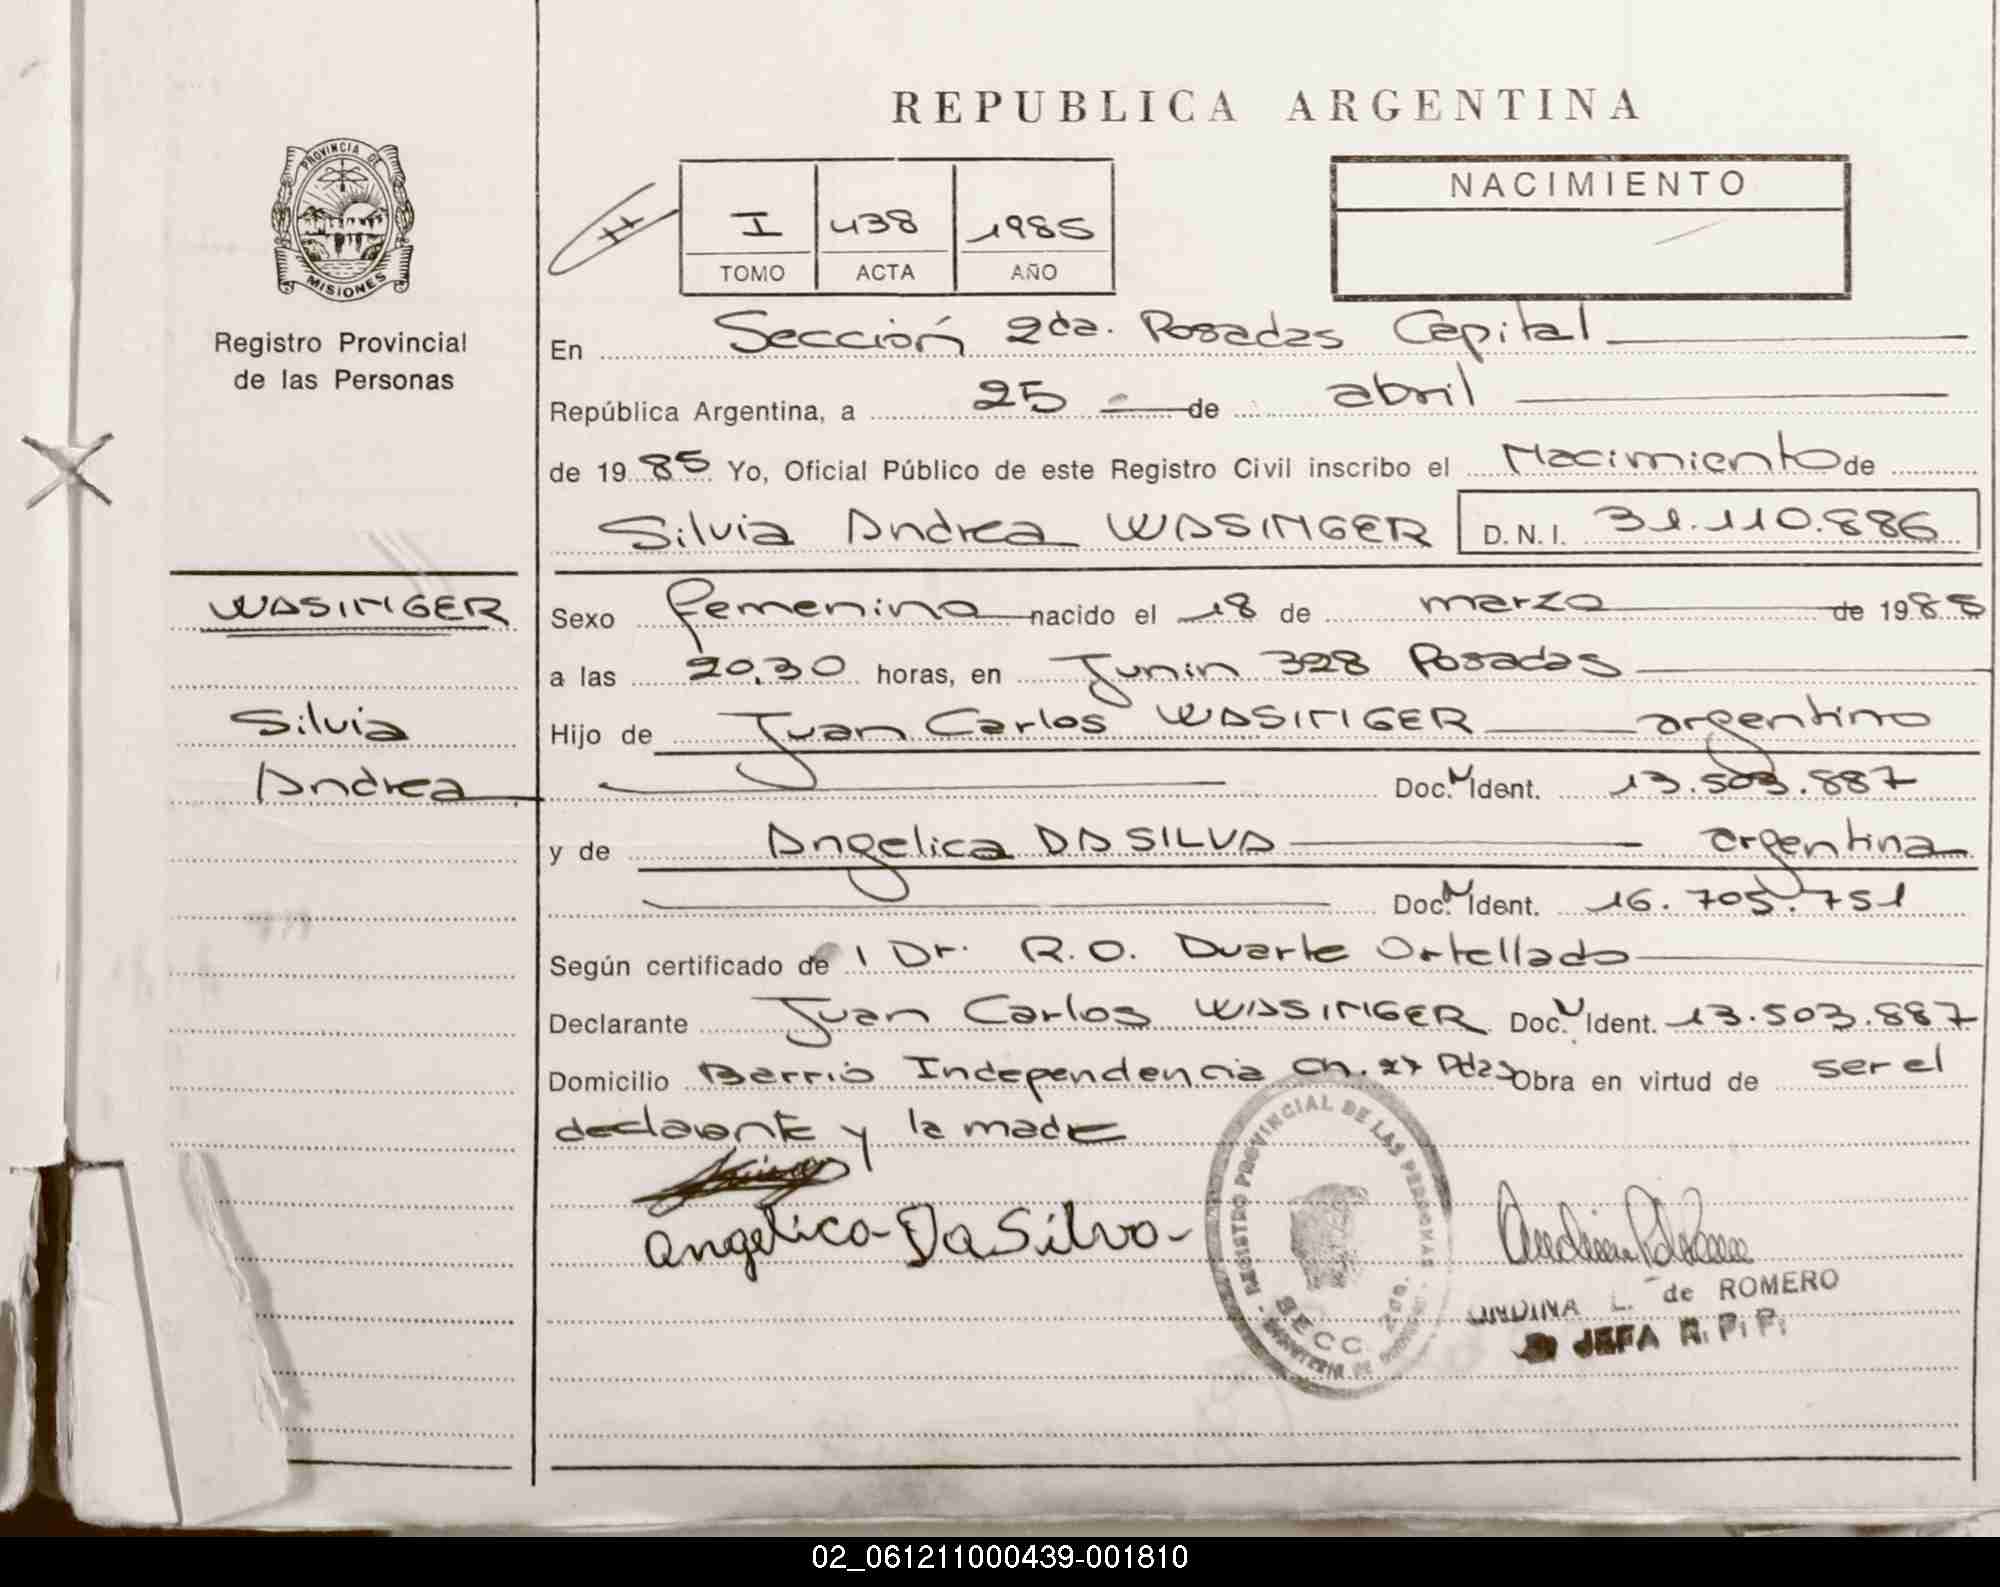 REPUBLICA ARGENTINA
PROVINCIA DE
MISIONES
Registro Provincial
de las Personas
I 438 1985
TOMO ACTA AÑO
NACIMIENTO
En Sección 2da. Posadas Capital
República Argentina, a 25 de abril
de 1985 Yo, Oficial Público de este Registro Civil inscribo el Nacimiento de
Silvia Andrea WASINGER D.N.I. 31.110.886
WASINGER
Silvia
Andrea
Sexo femenino nacido el 18 de marzo de 1985
a las 20,30 horas, en Junin 328 Posadas
Hijo de Juan Carlos WASINGER argentino
Doc. Ident. 13.503.887
y de Angelica DA SILVA argentina
Doc. Ident. 16.705.751
Según certificado de Dr. R.O. Duarte Ortellado
Declarante Juan Carlos WASINGER Doc. Ident. 13.503.887
Domicilio Barrio Independencia Ch. 27 Pdas Obra en virtud de ser el
declarante y la madre
Angelica Da Silva
REGISTRO PROVINCIAL DE LAS PERSONAS
SECC. 2da.
ONDINA L. de ROMERO
JEFA R.P.P.
02_061211000439-001810